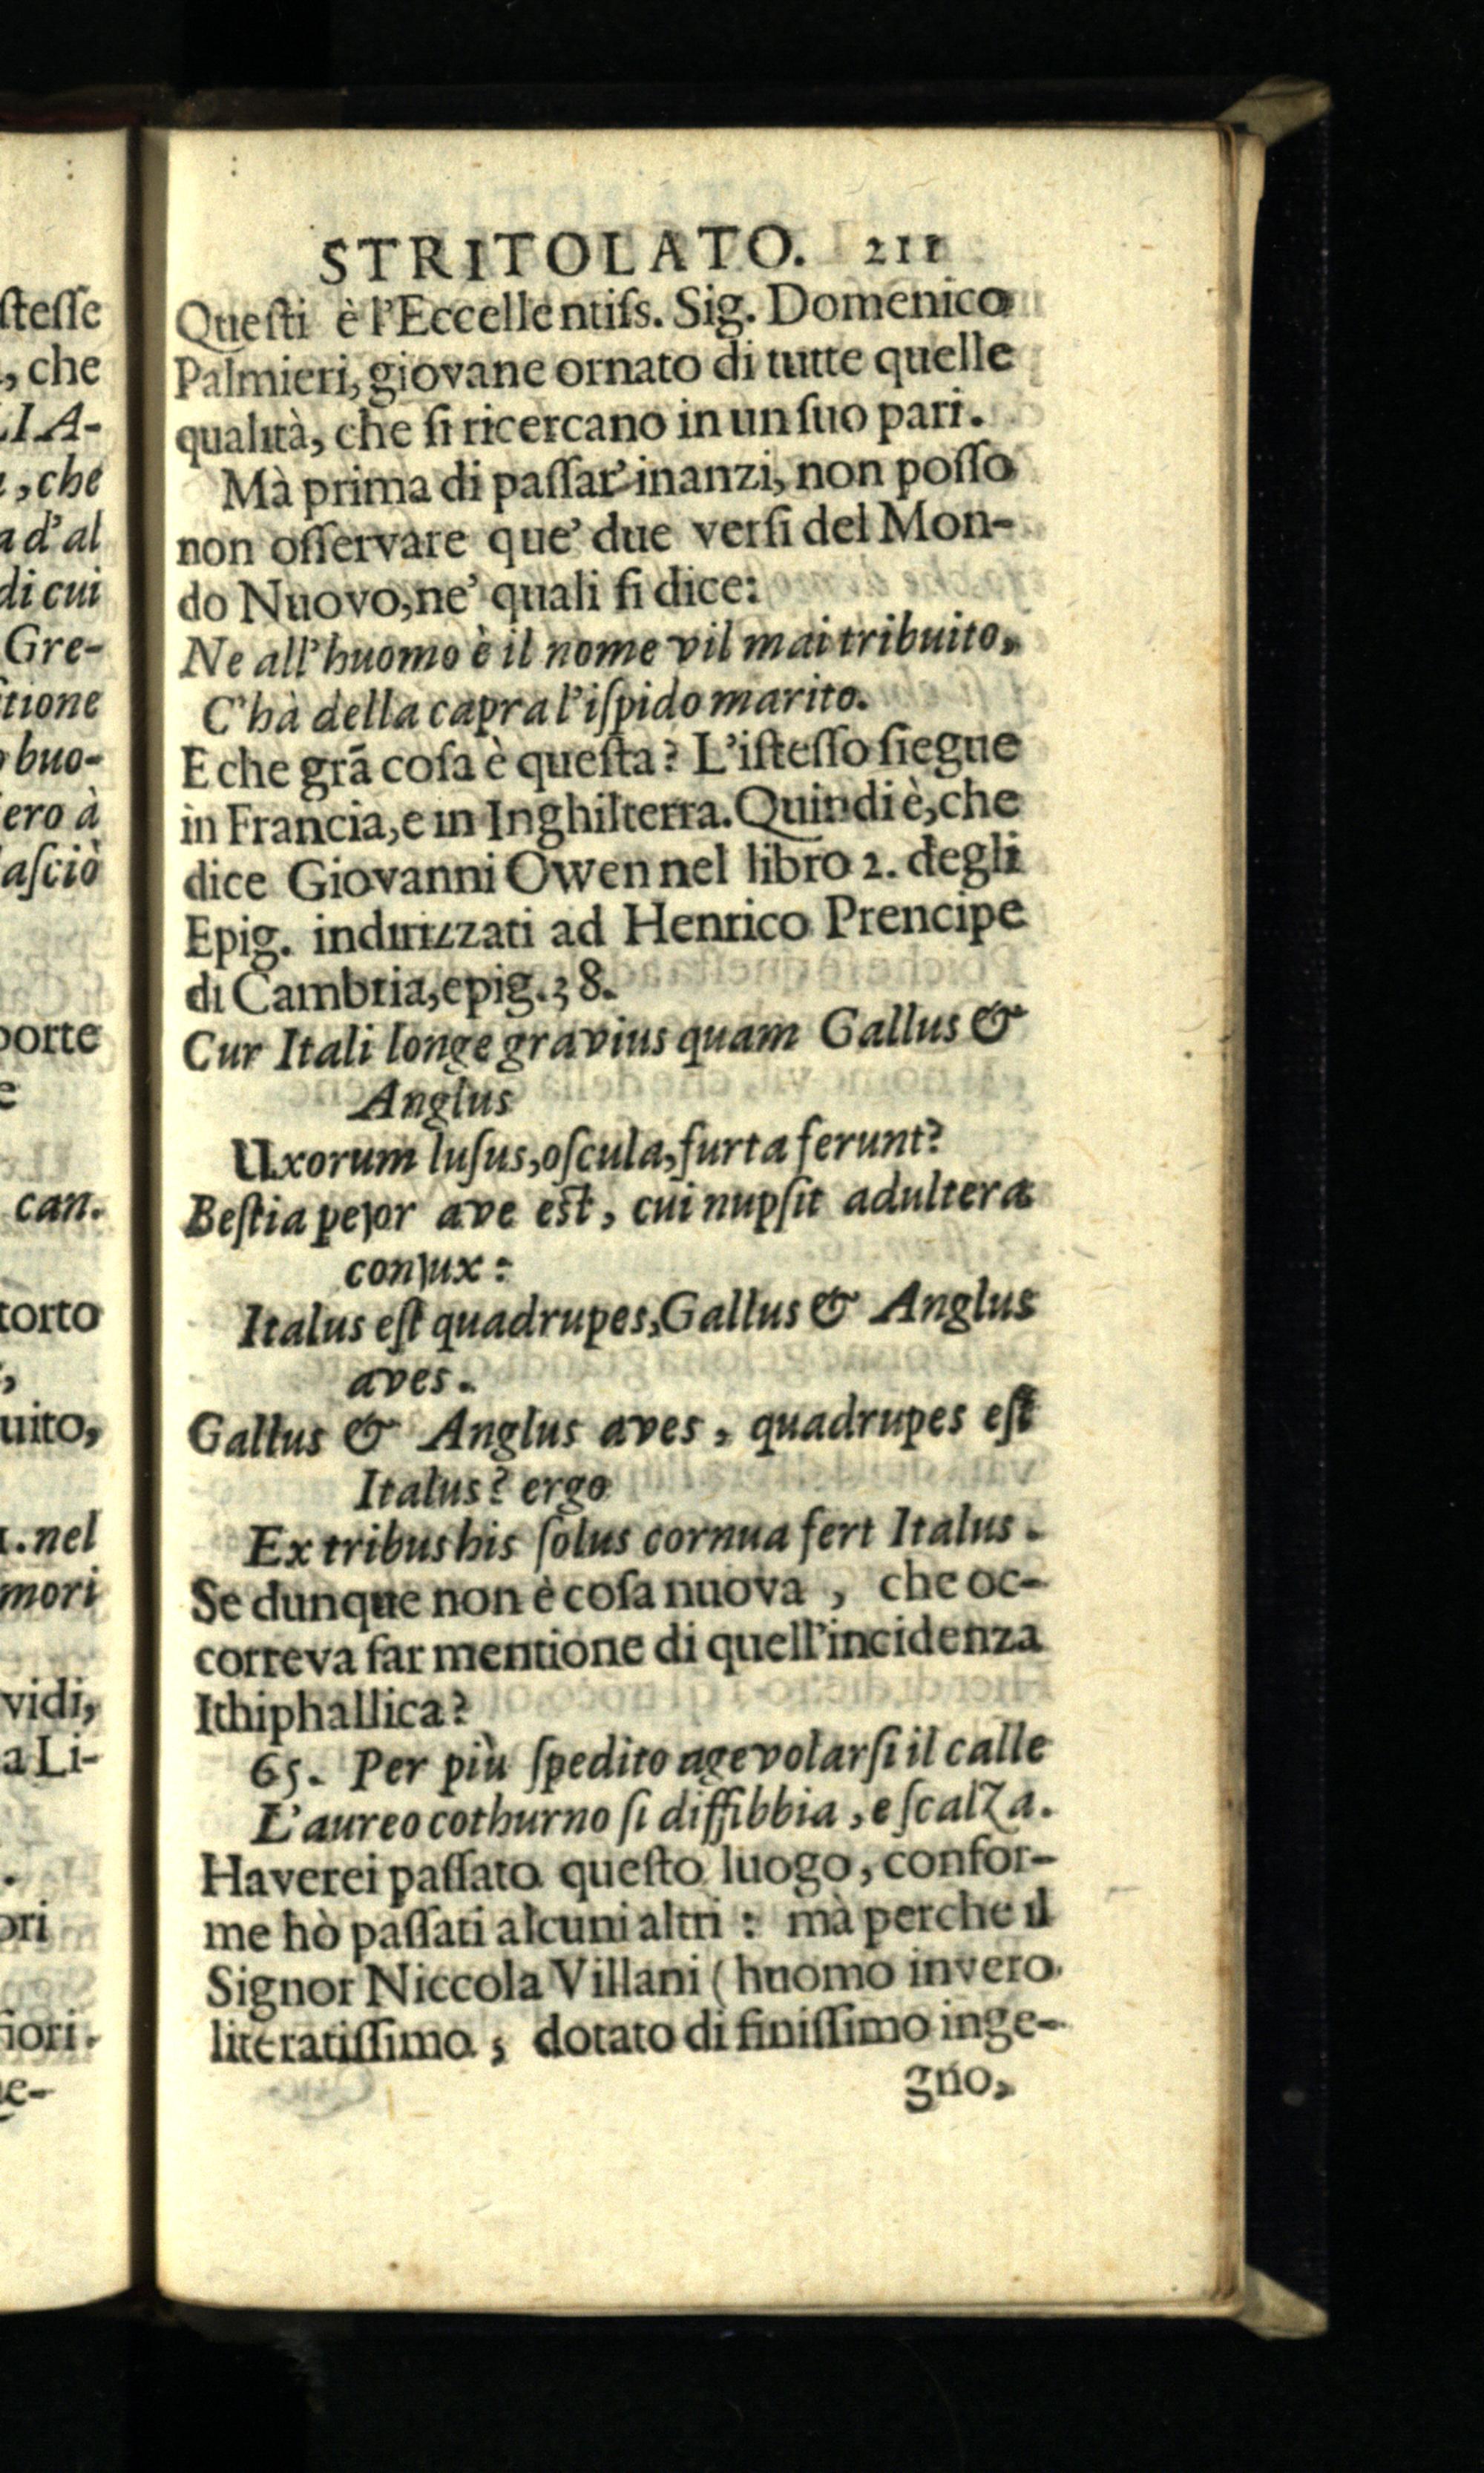 STRITOLATO. 211
Queſti è l'Eccellentiſs. Sig. Domenico
Palmieri, giovane ornato di tutte quelle
qualità, che ſi ricercano in un ſuo pari.
Mà prima di paſſar' inanzi, non poſſo
non oſſervare que' due verſi del Mon-
do Nuovo, ne' quali ſi dice:
Ne all'huomo è il nome vil mai tribuito,
C'hà della capra l'iſpido marito.
E che grã coſa è queſta? L'iſteſſo ſiegue
in Francia, e in Inghilterra. Quindi è, che
dice Giovanni Owen nel libro 2. degli
Epig. indirizzati ad Henrico Prencipe
di Cambria, epig. 38.
Cur Itali longe gravius quam Gallus &
Anglus
Uxorum luſus, oſcula, furta ferunt?
Beſtia pejor ave eſt, cui nupſit adultera
conjux:
Italus eſt quadrupes, Gallus & Anglus
aves.
Gallus & Anglus aves, quadrupes eſt
Italus? ergo
Ex tribus his ſolus cornua fert Italus.
Se dunque non è coſa nuova, che oc-
correva far mentione di quell'incidenza
Ithiphallica?
65. Per più ſpedito agevolarſi il calle
L'aureo cothurno ſi diffibbia, e ſcalza.
Haverei paſſato queſto luogo, confor-
me hò paſſati alcuni altri: mà perche il
Signor Niccola Villani (huomo invero
literatiſſimo, dotato di finiſſimo inge-
gno,
ſteſſe
, che
LIA-
, che
a d'al
di cui
Gre-
tione
buo-
ero à
aſciò
porte
can.
torto
uito,
1. nel
mori
vidi,
a Li-
ori
iori.